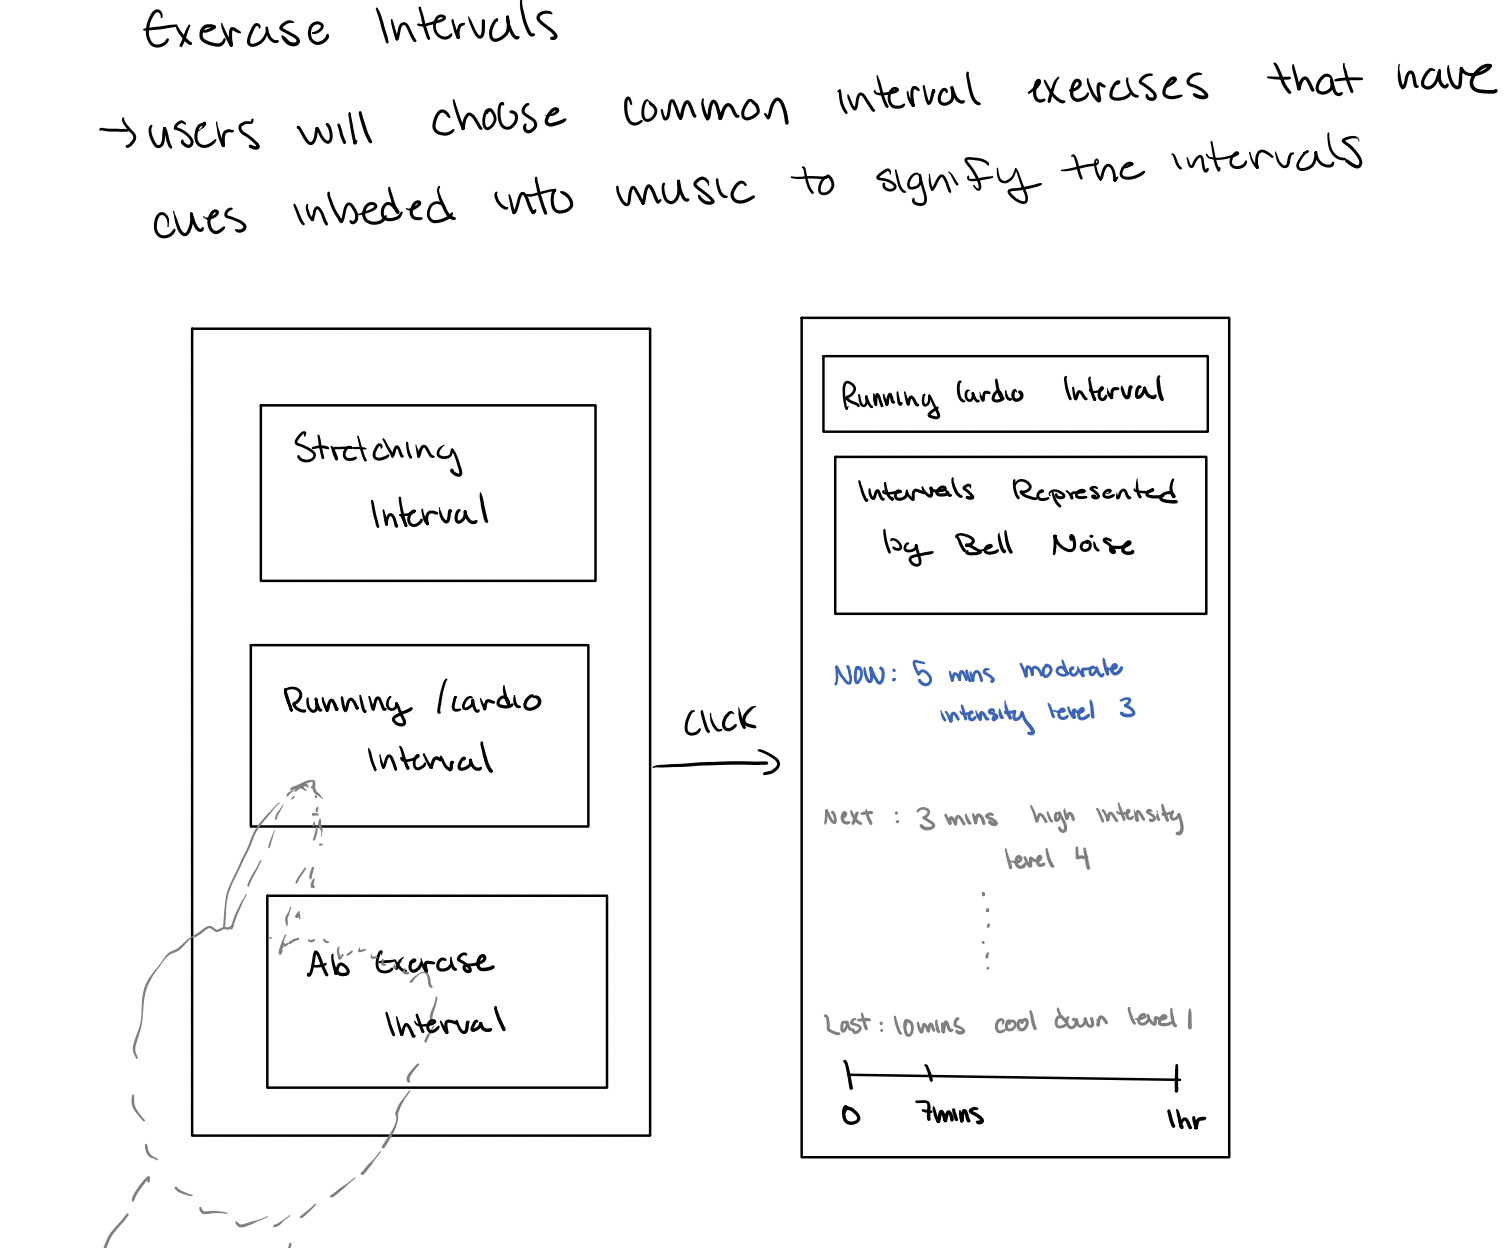 Exerase Intervals
→ users will choose common interval exercises that have
cues inbeded into music to signify the intervals
Stretching
Interval
Running /cardio
Interval
Ab Exerase
Interval
CLICK
Running Cardio Interval
Intervals Represented
by Bell Noise
Now: 5 mins moderate
intensity level 3
Next : 3 mins high intensity
level 4
Last: 10mins cool down level 1
0 7mins 1hr